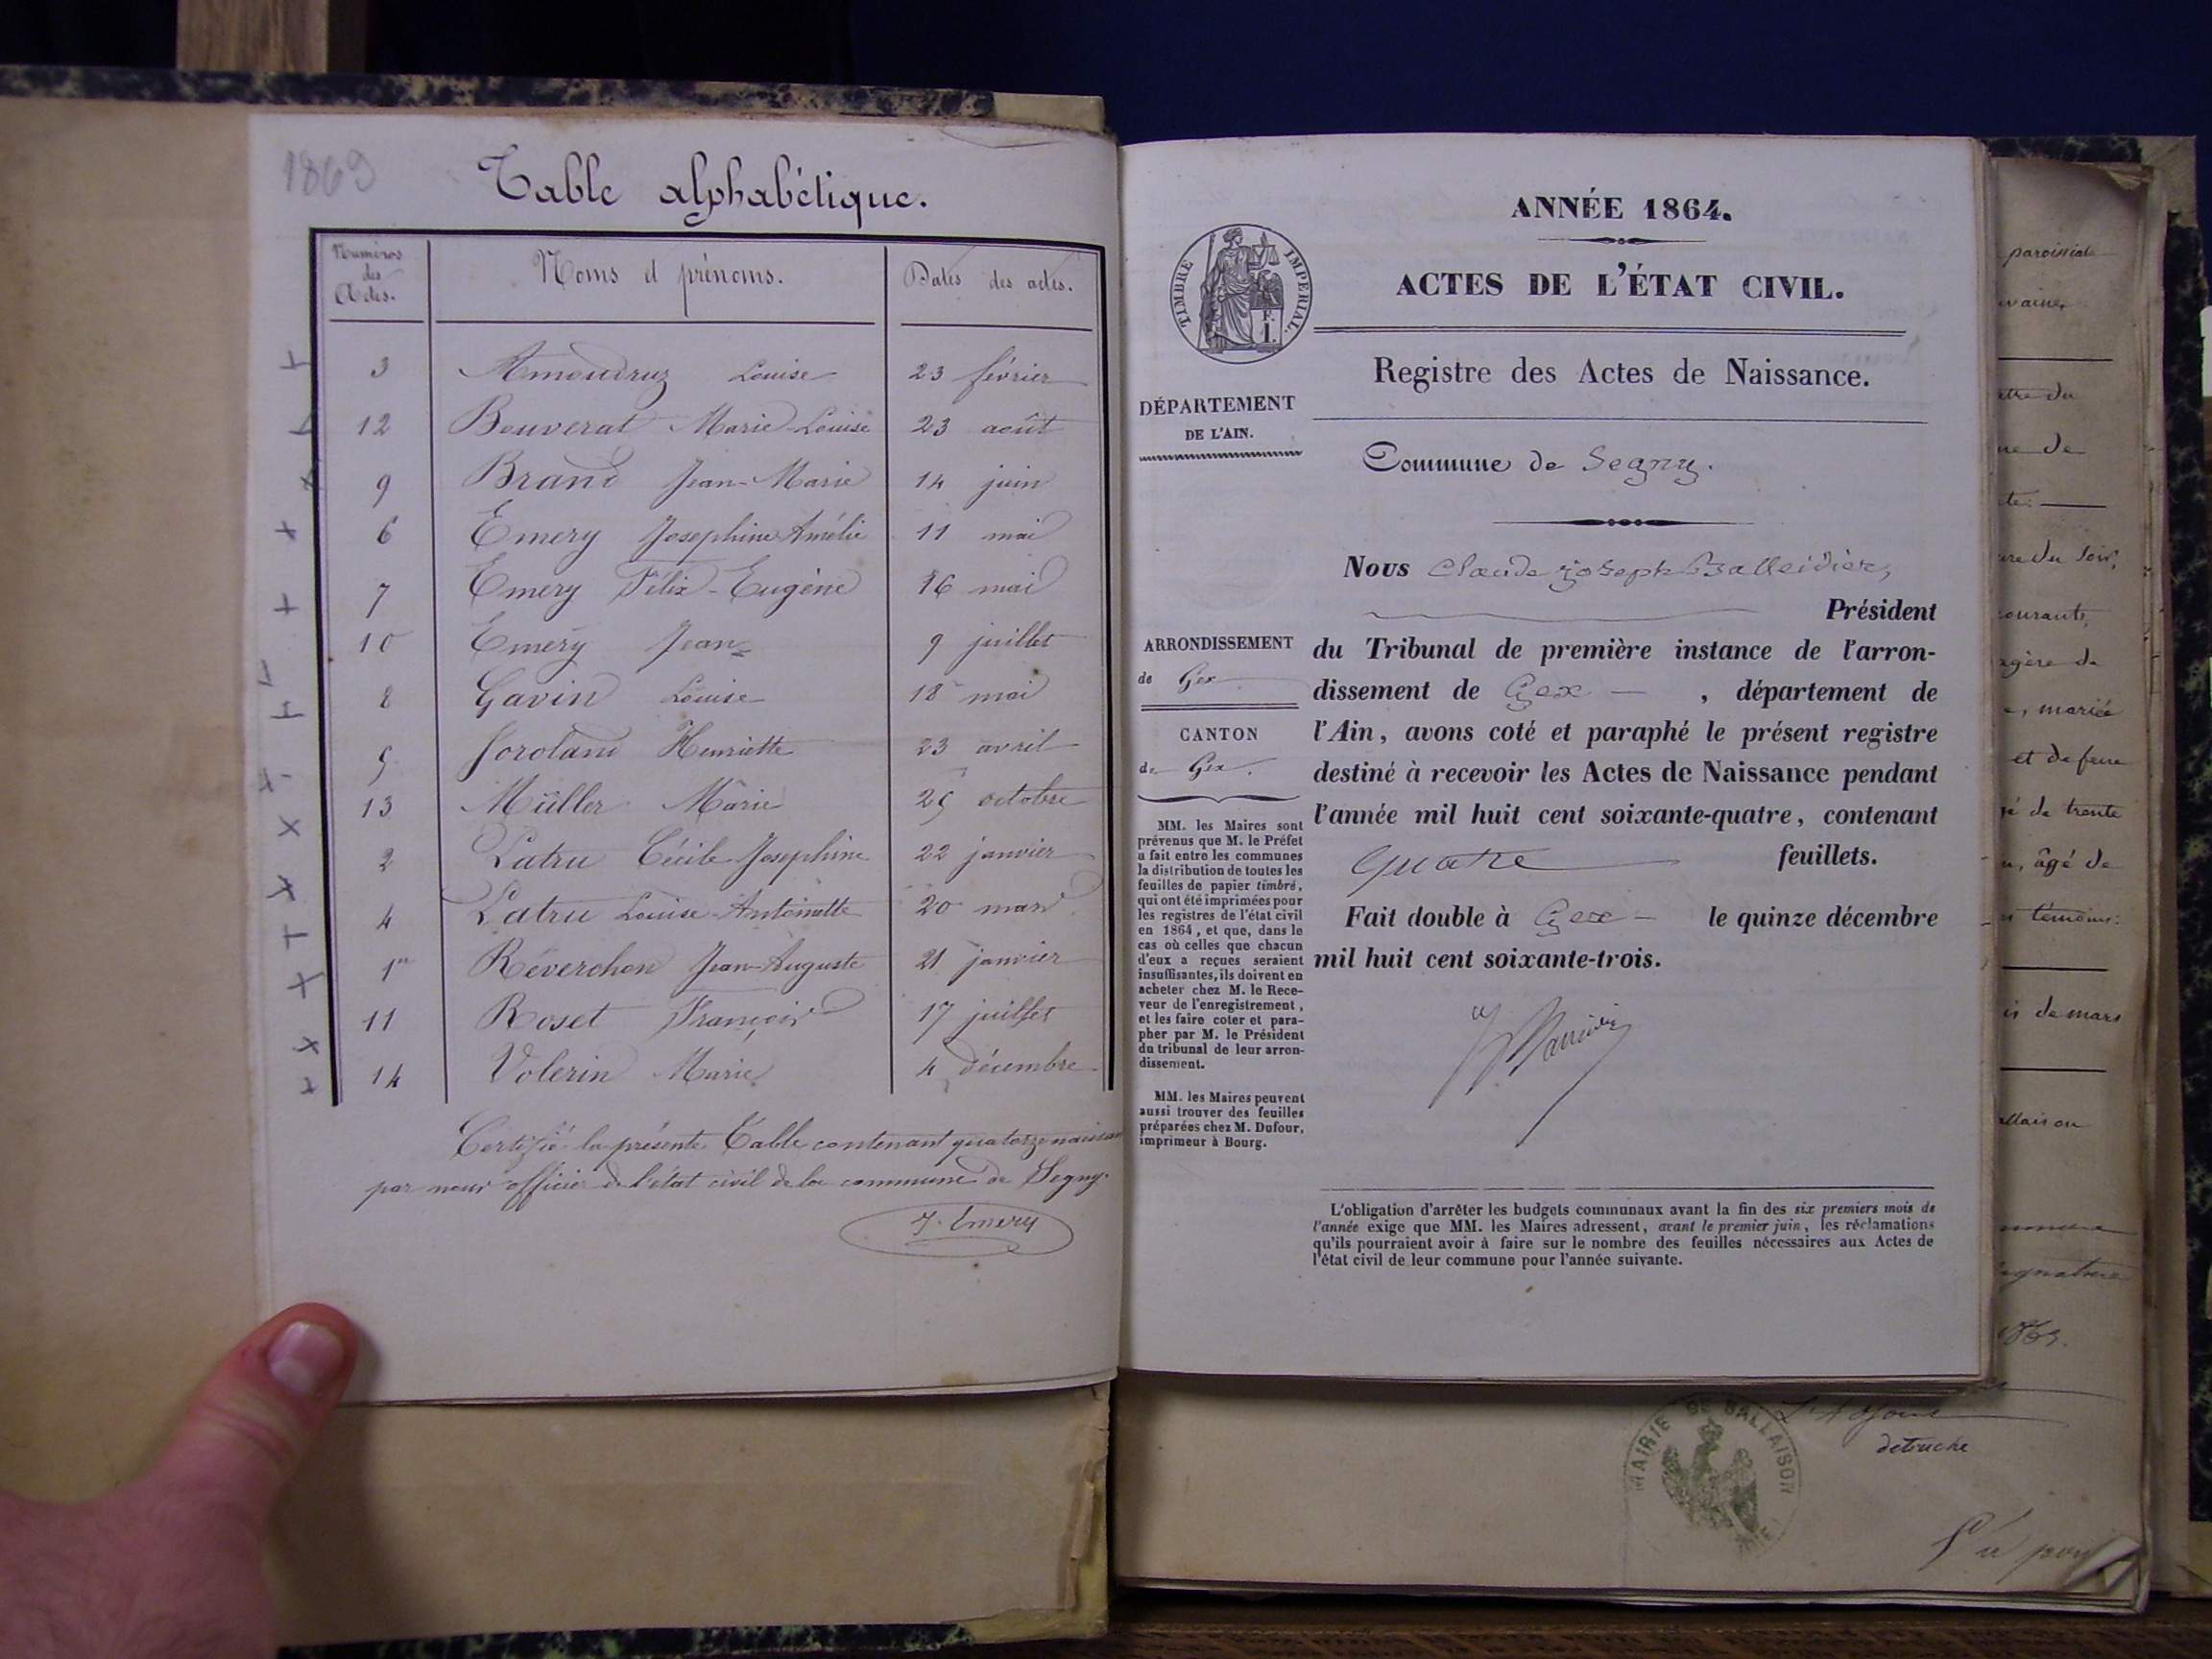 1863
Table alphabétique.
Numéros des Actes. Noms et prénoms. Dates des actes.
3 Amoudruz Louise 23 février
12 Bouverat Marie-Louise 23 août
9 Brand Jean-Marie 14 juin
6 Emery Josephine Amélie 11 mai
7 Emery Félix-Eugène 16 mai
10 Emery Jean 9 juillet
8 Gavin Louise 18 mai
5 Henriette 23 avril
13 Müller Marie 25 octobre
2 Latru Cécile Josephine 22 janvier
4 Latru Louise-Antoinette 20 mars
1er Réverchon Jean-Auguste 21 janvier
11 Roset François 17 juillet
14 Volerin Marie 4 décembre
Certifié la présente Table contenant quatorze
par nous officier de l'état civil de la commune de Segny.
J. Emery
ANNÉE 1864.
TIMBRE IMPÉRIAL.
ACTES DE L'ÉTAT CIVIL.
Registre des Actes de Naissance.
DÉPARTEMENT
DE L'AIN.
Commune de Segny.
Nous Claude joseph Balleidier,
Président
ARRONDISSEMENT
de Gex
CANTON
de Gex.
du Tribunal de première instance de l'arron-
dissement de Gex , département de
l'Ain, avons coté et paraphé le présent registre
destiné à recevoir les Actes de Naissance pendant
l'année mil huit cent soixante-quatre, contenant
quatre feuillets.
Fait double à Gex le quinze décembre
mil huit cent soixante-trois.
MM. les Maires sont
prévenus que M. le Préfet
a fait entre les communes
la distribution de toutes les
feuilles de papier timbré,
qui ont été imprimées pour
les registres de l'état civil
en 1864, et que, dans le
cas où celles que chacun
d'eux a reçues seraient
insuffisantes, ils doivent en
acheter chez M. le Rece-
veur de l'enregistrement,
et les faire coter et para-
pher par M. le Président
du tribunal de leur arron-
dissement.
MM. les Maires peuvent
aussi trouver des feuilles
préparées chez M. Dufour,
imprimeur à Bourg.
L'obligation d'arrêter les budgets communaux avant la fin des six premiers mois de
l'année exige que MM. les Maires adressent, avant le premier juin, les réclamations
qu'ils pourraient avoir à faire sur le nombre des feuilles nécessaires aux Actes de
l'état civil de leur commune pour l'année suivante.
ne de
courant,
, mariée
de trente
âgé de
témoins:
de mars
1863.
MAIRIE DE BALLAISON
detruche